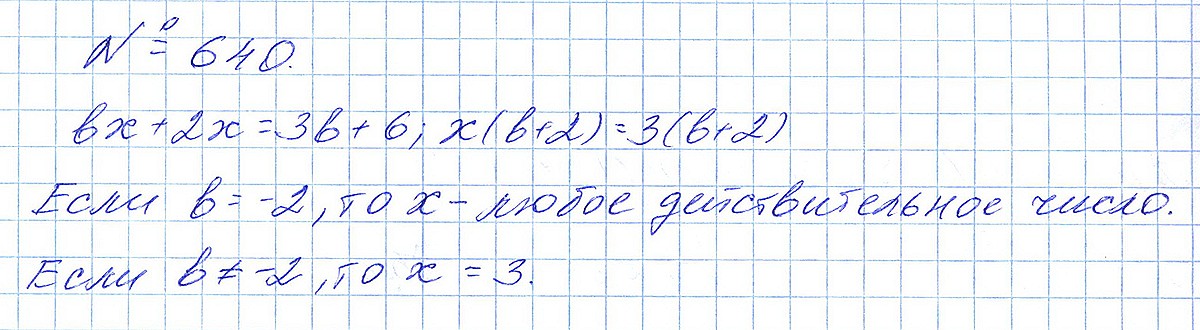 № 640.
вx + 2x = 3в + 6; x(в+2) = 3(в+2)
Если в = -2, то x - любое действительное число.
Если в ≠ -2, то x = 3.